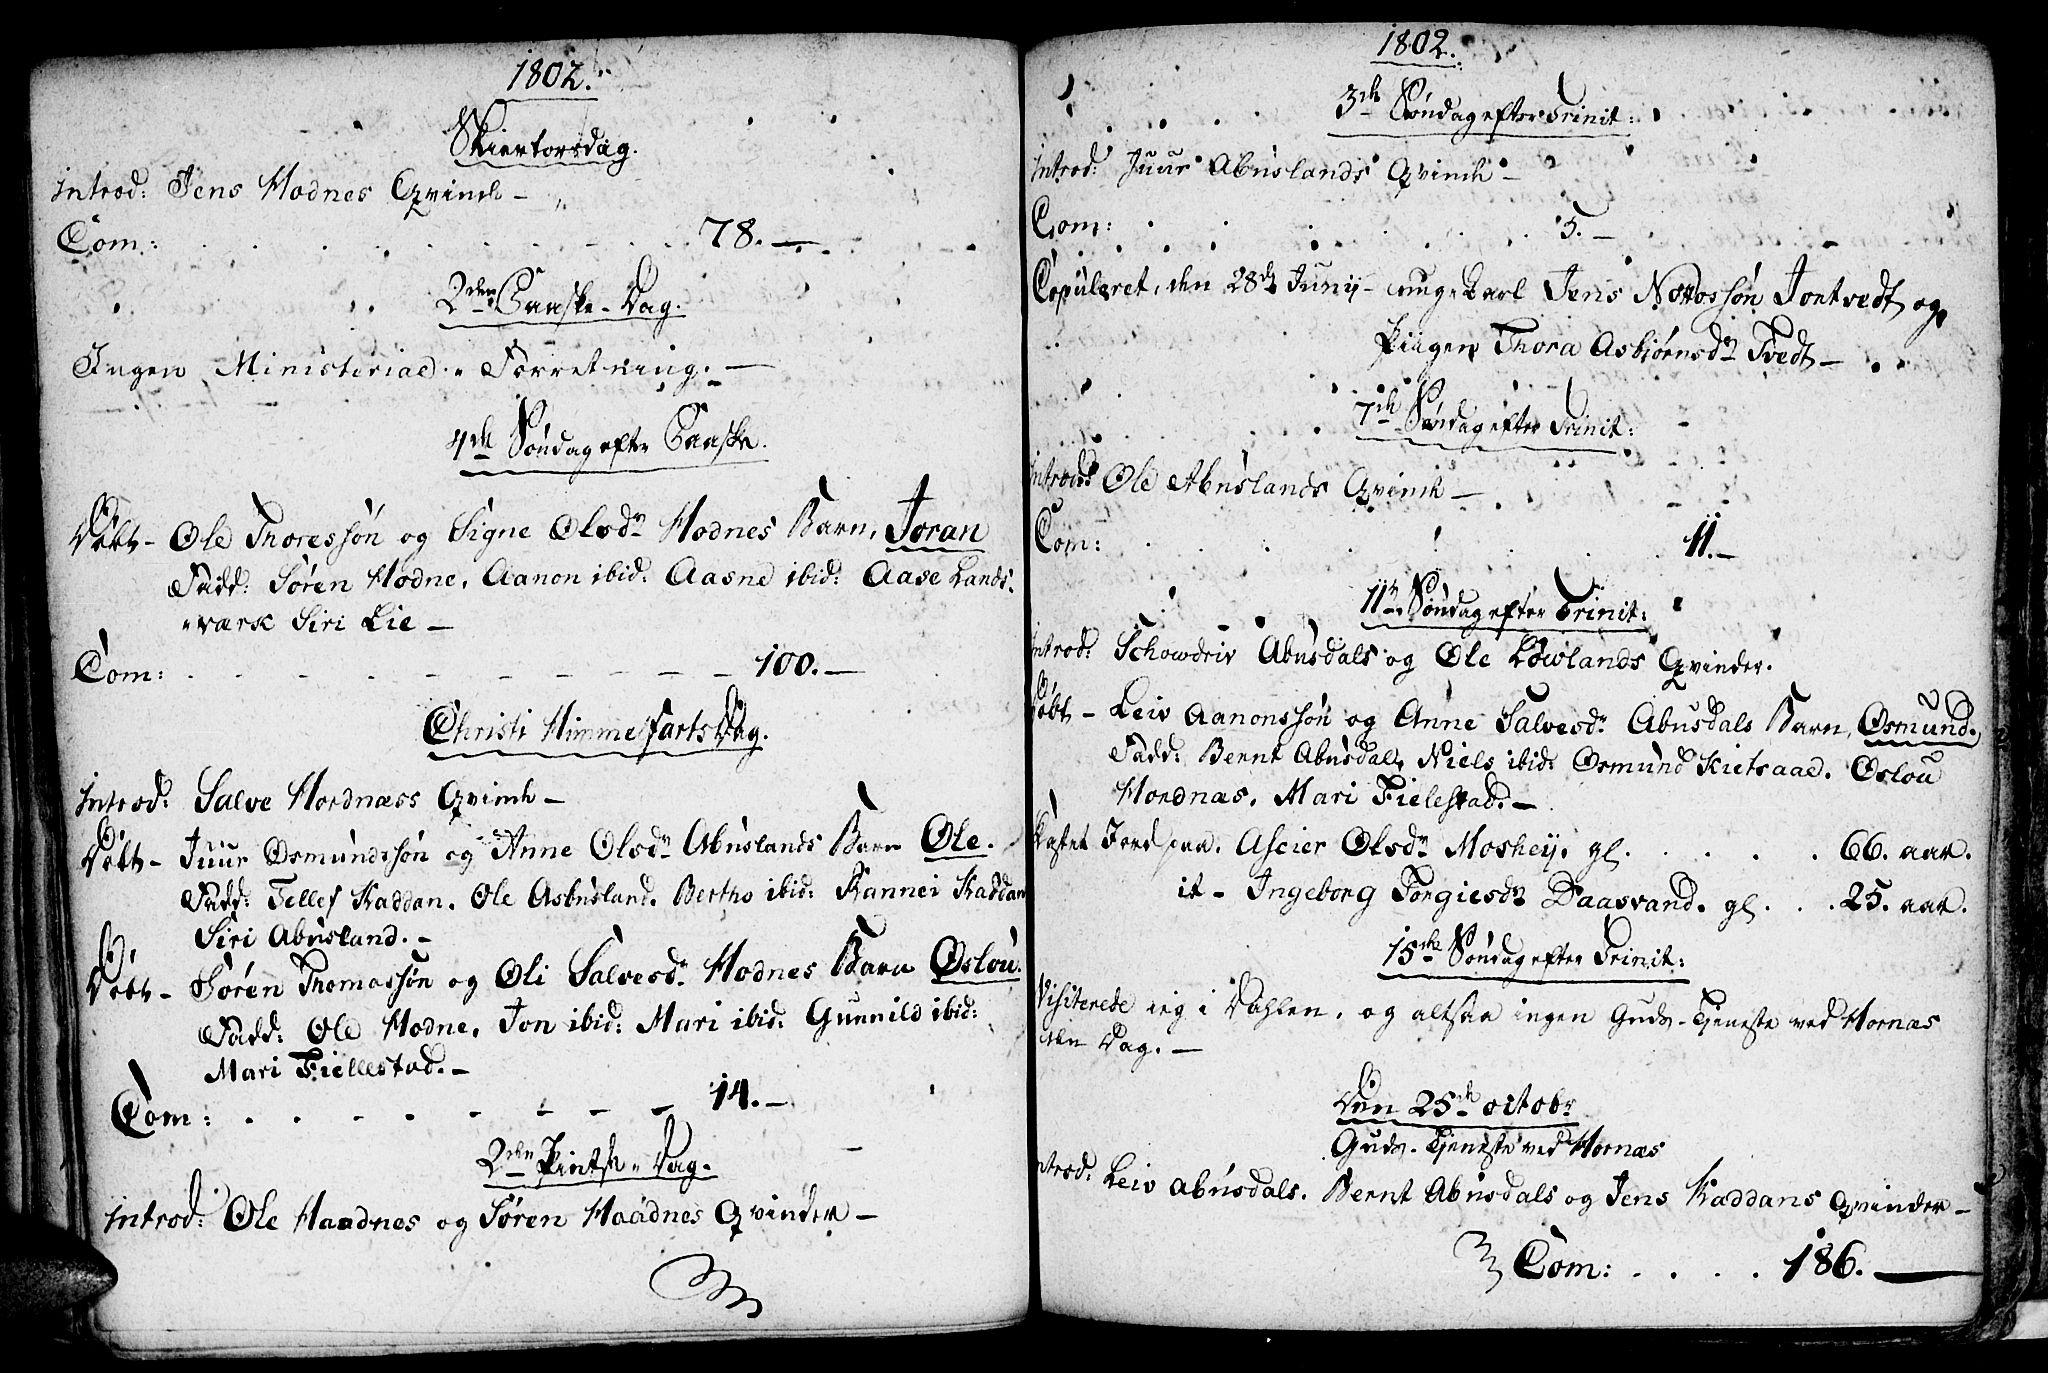 1802.
Skiertorsdag.
Introd: Jens Hodnes Qvinde –
Com: 78. –
2den Paaske-Dag.
Ingen Ministerial-Forretning. –
4de Søndag efter Paaske.
Døbt – Ole Thoressøn og Signe Olsdr Hodnes Barn, Joran
Fadd: Søren Hodne, Aanon ibid: Aasne ibid: Aase Lands-
værk Siri Lie –
Com: 100. –
Christi Himmelfarts Dag.
Introd: Salve Hordnæss Qvinde –
Døbt – Juur Osmundssøn og Anne Olsdr Abuslands Barn Ole.
Fadd: Tellef Kaddan. Ole Asbusland. Bertho ibid: Rannei Kaddan
Siri Abusland. –
Døbt – Søren Thomassøn og Oli Salvesdr Hodnes Barn Oslou.
Fadd: Ole Hodne, Jon ibid: Mari ibid: Gunnild ibid:
Mari Fiellestad. –
Com: 14. –
2den Pintse-Dag.
Introd: Ole Haadnes og Søren Haadnes Qvinder –
1802.
3de Søndag efter Trinit:
Introd: Juur Abuslands Qvinde –
Com: 5. –
Copuleret, den 28de Junij – unge Karl Jens Jontvedt og
Piigen Thora Asbjørnsdr Tvedt –
7de Søndag efter Trinit:
Introd: Ole Abuslands Qvinde –
Com: 11. –
11te Søndag efter Trinit:
Introd: Schowdriv Abusdals og Ole Lowlands Qvinder.
Døbt – Leiv Aanonssøn og Anne Salvesdr Abusdals Barn, Osmund.
Fadd: Bernt Abusdal, Niels ibid: Osmund Kietsaae. Oslou
Hordnas, Mari Fielestad. –
Kastet Jord paa. Ascier Olsdr Moshey. gl. 66. aar.
it – Ingeborg Torgiesdr Daasvand. gl. 25. aar.
15de Søndag efter Trinit:
Visiterede ieg i Dahlen, og altsaa ingen Guds-Tjeneste ved Hornæs
den Dag. –
Den 25de octobr
Guds-Tjeneste ved Hornæs
Introd: Leiv Abusdals. Bernt Abusdals og Jens Kaddans Qvinder –
Com: 186. –